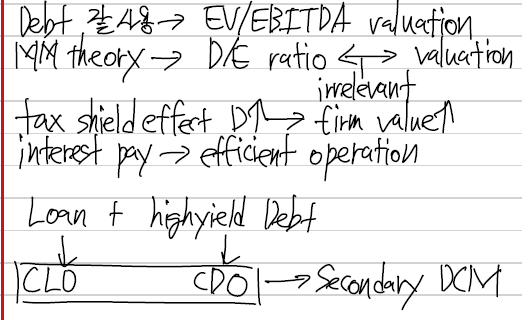 Debt 잘 사용 → EV/EBITDA valuation
MM theory → D/E ratio ↔ valuation
irrelevant
tax shield effect D↑ → firm value↑
interest pay → efficient operation
Loan + highyield Debt
CLO CDO → Secondary DCM